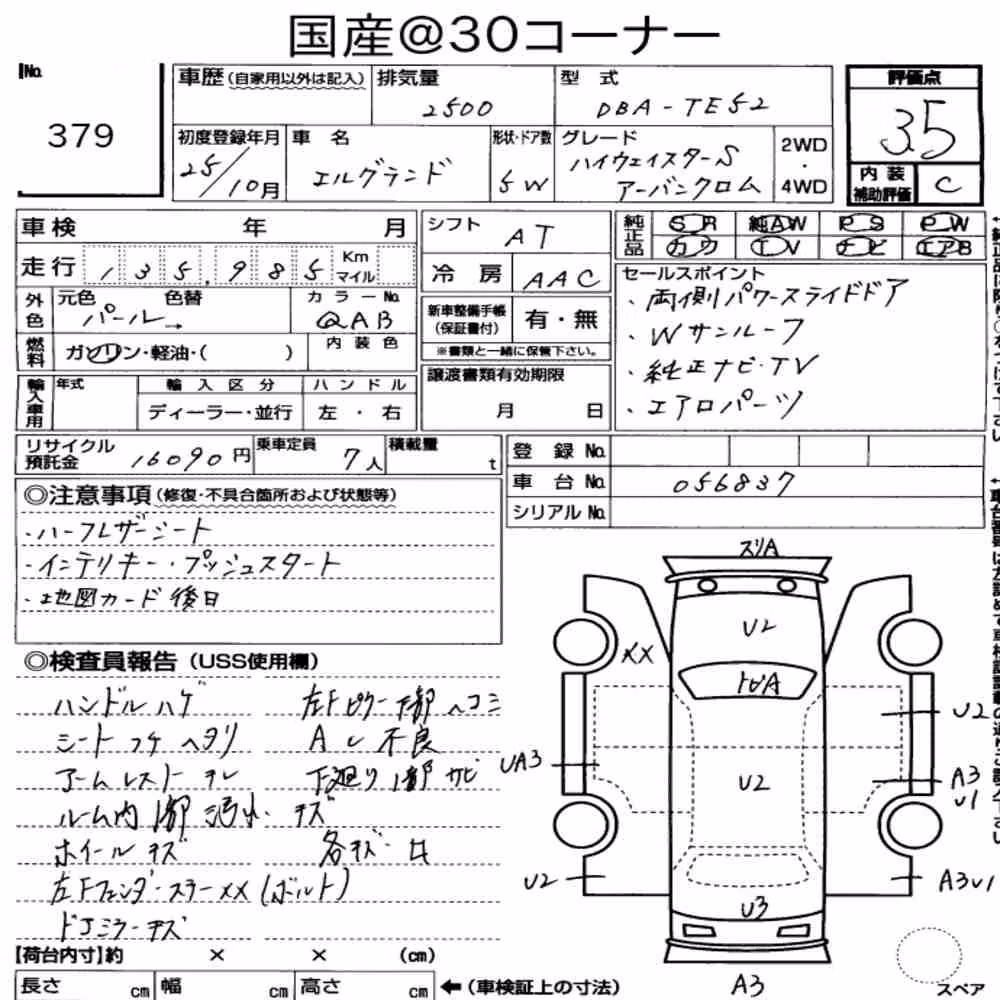 国産@30コーナー
No.
379
車歴(自家用以外は記入)
排気量
2500
型 式
DBA-TE52
評価点
3.5
初度登録年月
25/10月
車 名
エルグランド
形状・ドア数
5W
グレード
ハイウェイスターS
アーバンクロム
2WD
・
4WD
内装
補助評価
C
車検 年 月
走行 135,985 Km
マイル
シフト
AT
冷房
AAC
純正品
SR 純AW PS PW
カワ TV ナビ エアB
外色
元色 色替
パール→
カラーNo.
QAB
燃料
ガソリン・軽油・( )
内装色
新車整備手帳
(保証書付)
有・無
※書類と一緒に保管下さい。
セールスポイント
・両側パワースライドドア
・Wサンルーフ
・純正ナビ・TV
・エアロパーツ
輸入車用
年式
輸入区分
ディーラー・並行
ハンドル
左・右
譲渡書類有効期限
月 日
リサイクル
預託金
16090円
乗車定員
7人
積載量
t
登録 No.
車台 No.
056837
シリアル No.
◎注意事項(修復・不具合箇所および状態等)
・ハーフレザーシート
・インテリキー・プッシュスタート
・地図カード後日
◎検査員報告(USS使用欄)
ハンドルハゲ
シートコゲ ヘタリ
アームレスト スレ
ルーム内1部汚れ・キズ
ホイールキズ
左Fフェンダーステーxx(ボルト)
ドアミラーキズ
左Fピラー下部ヘコミ
Aし不良
下廻り1部サビ
各キズ・凹
スリA
U2
XX
トビA
U2
UA3
U2
A3
U1
U2
U3
A3U1
A3
スペア
【荷台内寸】約 × × (cm)
長さ cm 幅 cm 高さ cm ←(車検証上の寸法)